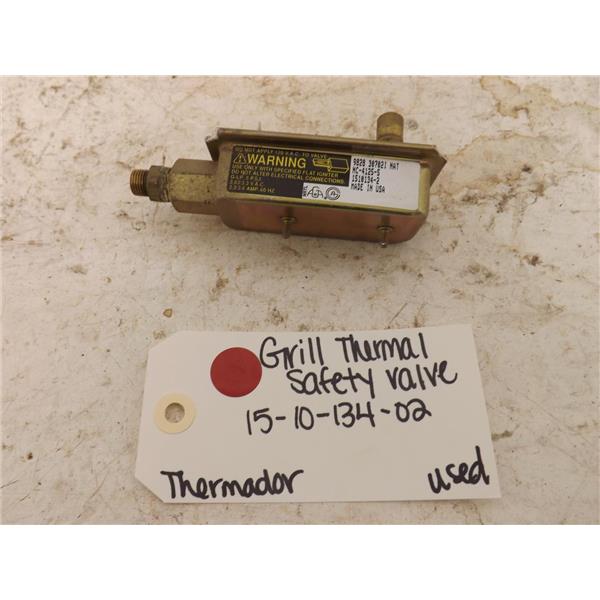 DO NOT APPLY 120 V.A.C. TO VALVE
WARNING
USE ONLY WITH SPECIFIED FLAT IGNITER
DO NOT ALTER ELECTRICAL CONNECTIONS
9828 307021 NAT
MC-4125-5
1510134-2
MADE IN USA
Grill Thermal
Safety valve
15-10-134-02
Thermador
used